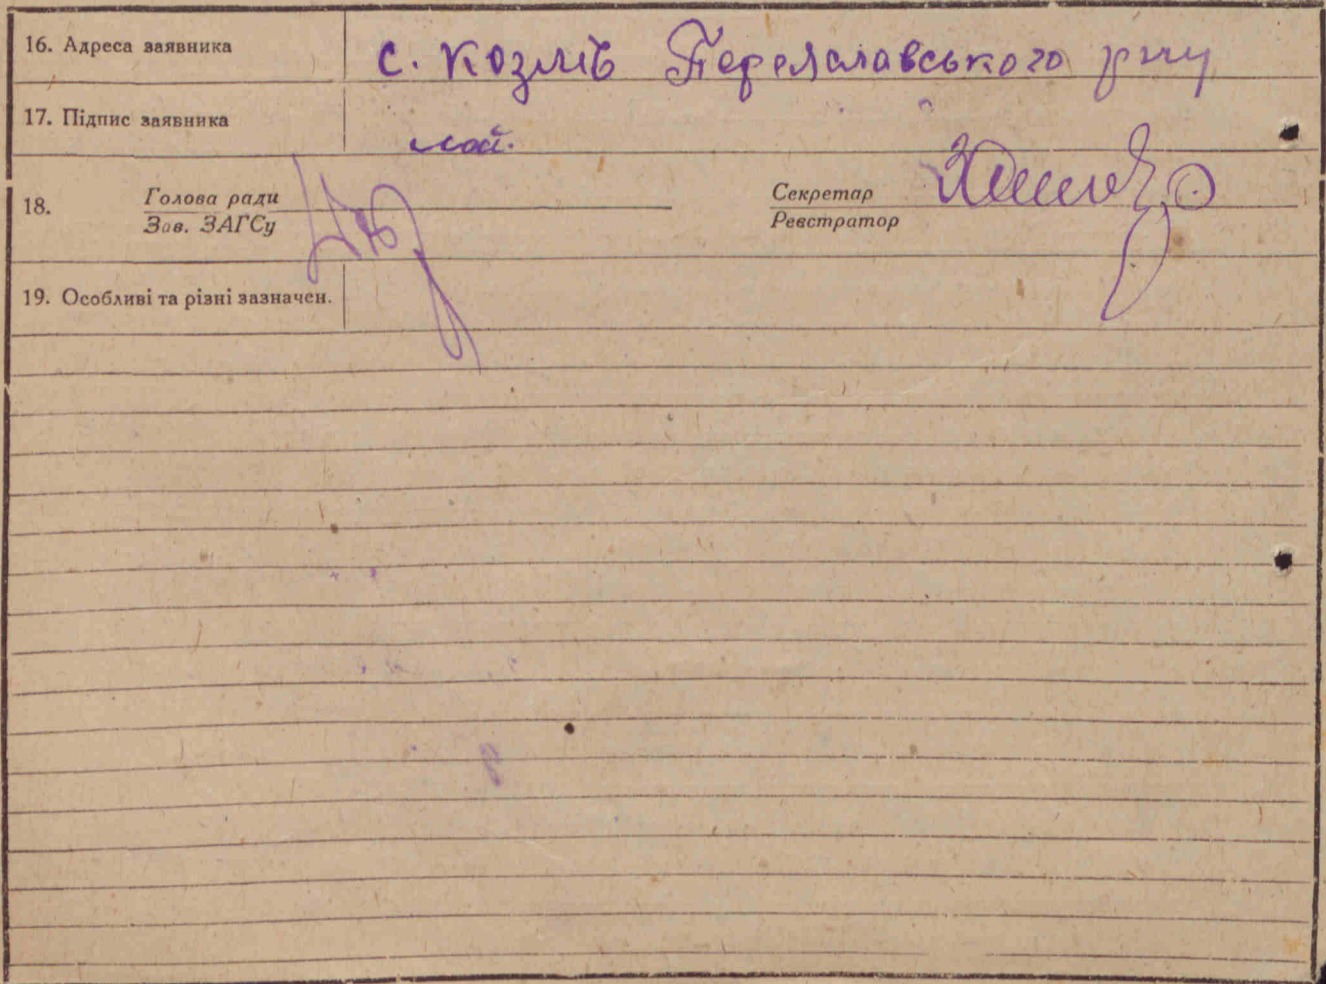 16. Адреса заявника с. Козлів Переяславського р-ну
17. Підпис заявника
18. Голова ради Секретар
Зав. ЗАГСу Реєстратор
19. Особливі та різні зазначен.